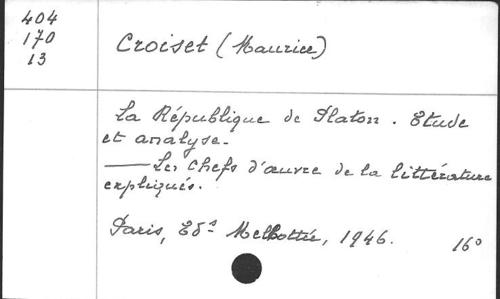 404
170
13
Croiset (Maurice)
La République de Platon. Etude
et analyse.
—— Les Chefs d'œuvre de la littérature
expliqués.
Paris, Eds Mellottée, 1946. 16°